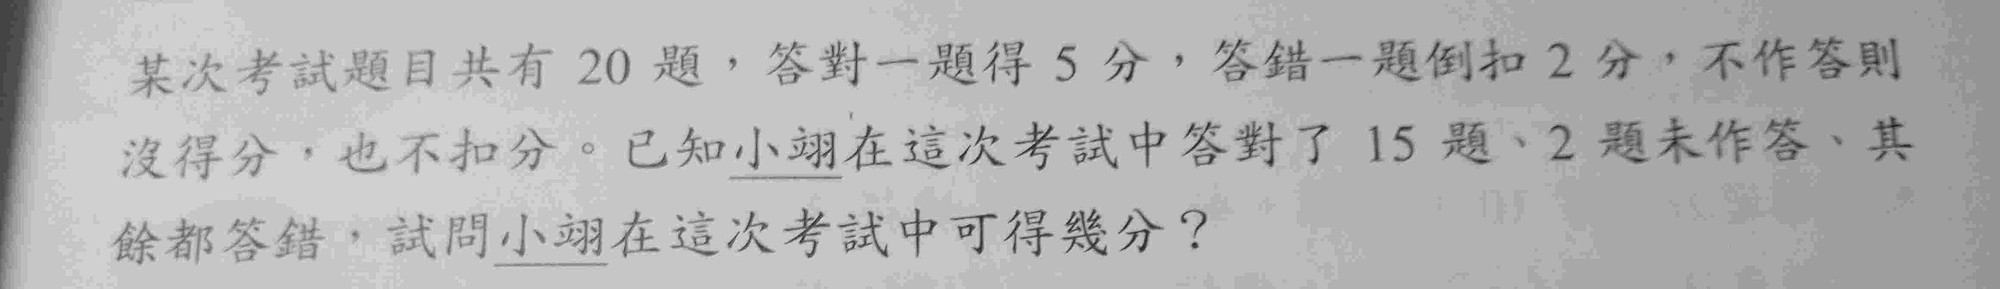 某次考試題目共有 20 題，答對一題得 5 分，答錯一題倒扣 2 分，不作答則
沒得分，也不扣分。已知小翊在這次考試中答對了 15 題、2 題未作答、其
餘都答錯，試問小翊在這次考試中可得幾分？